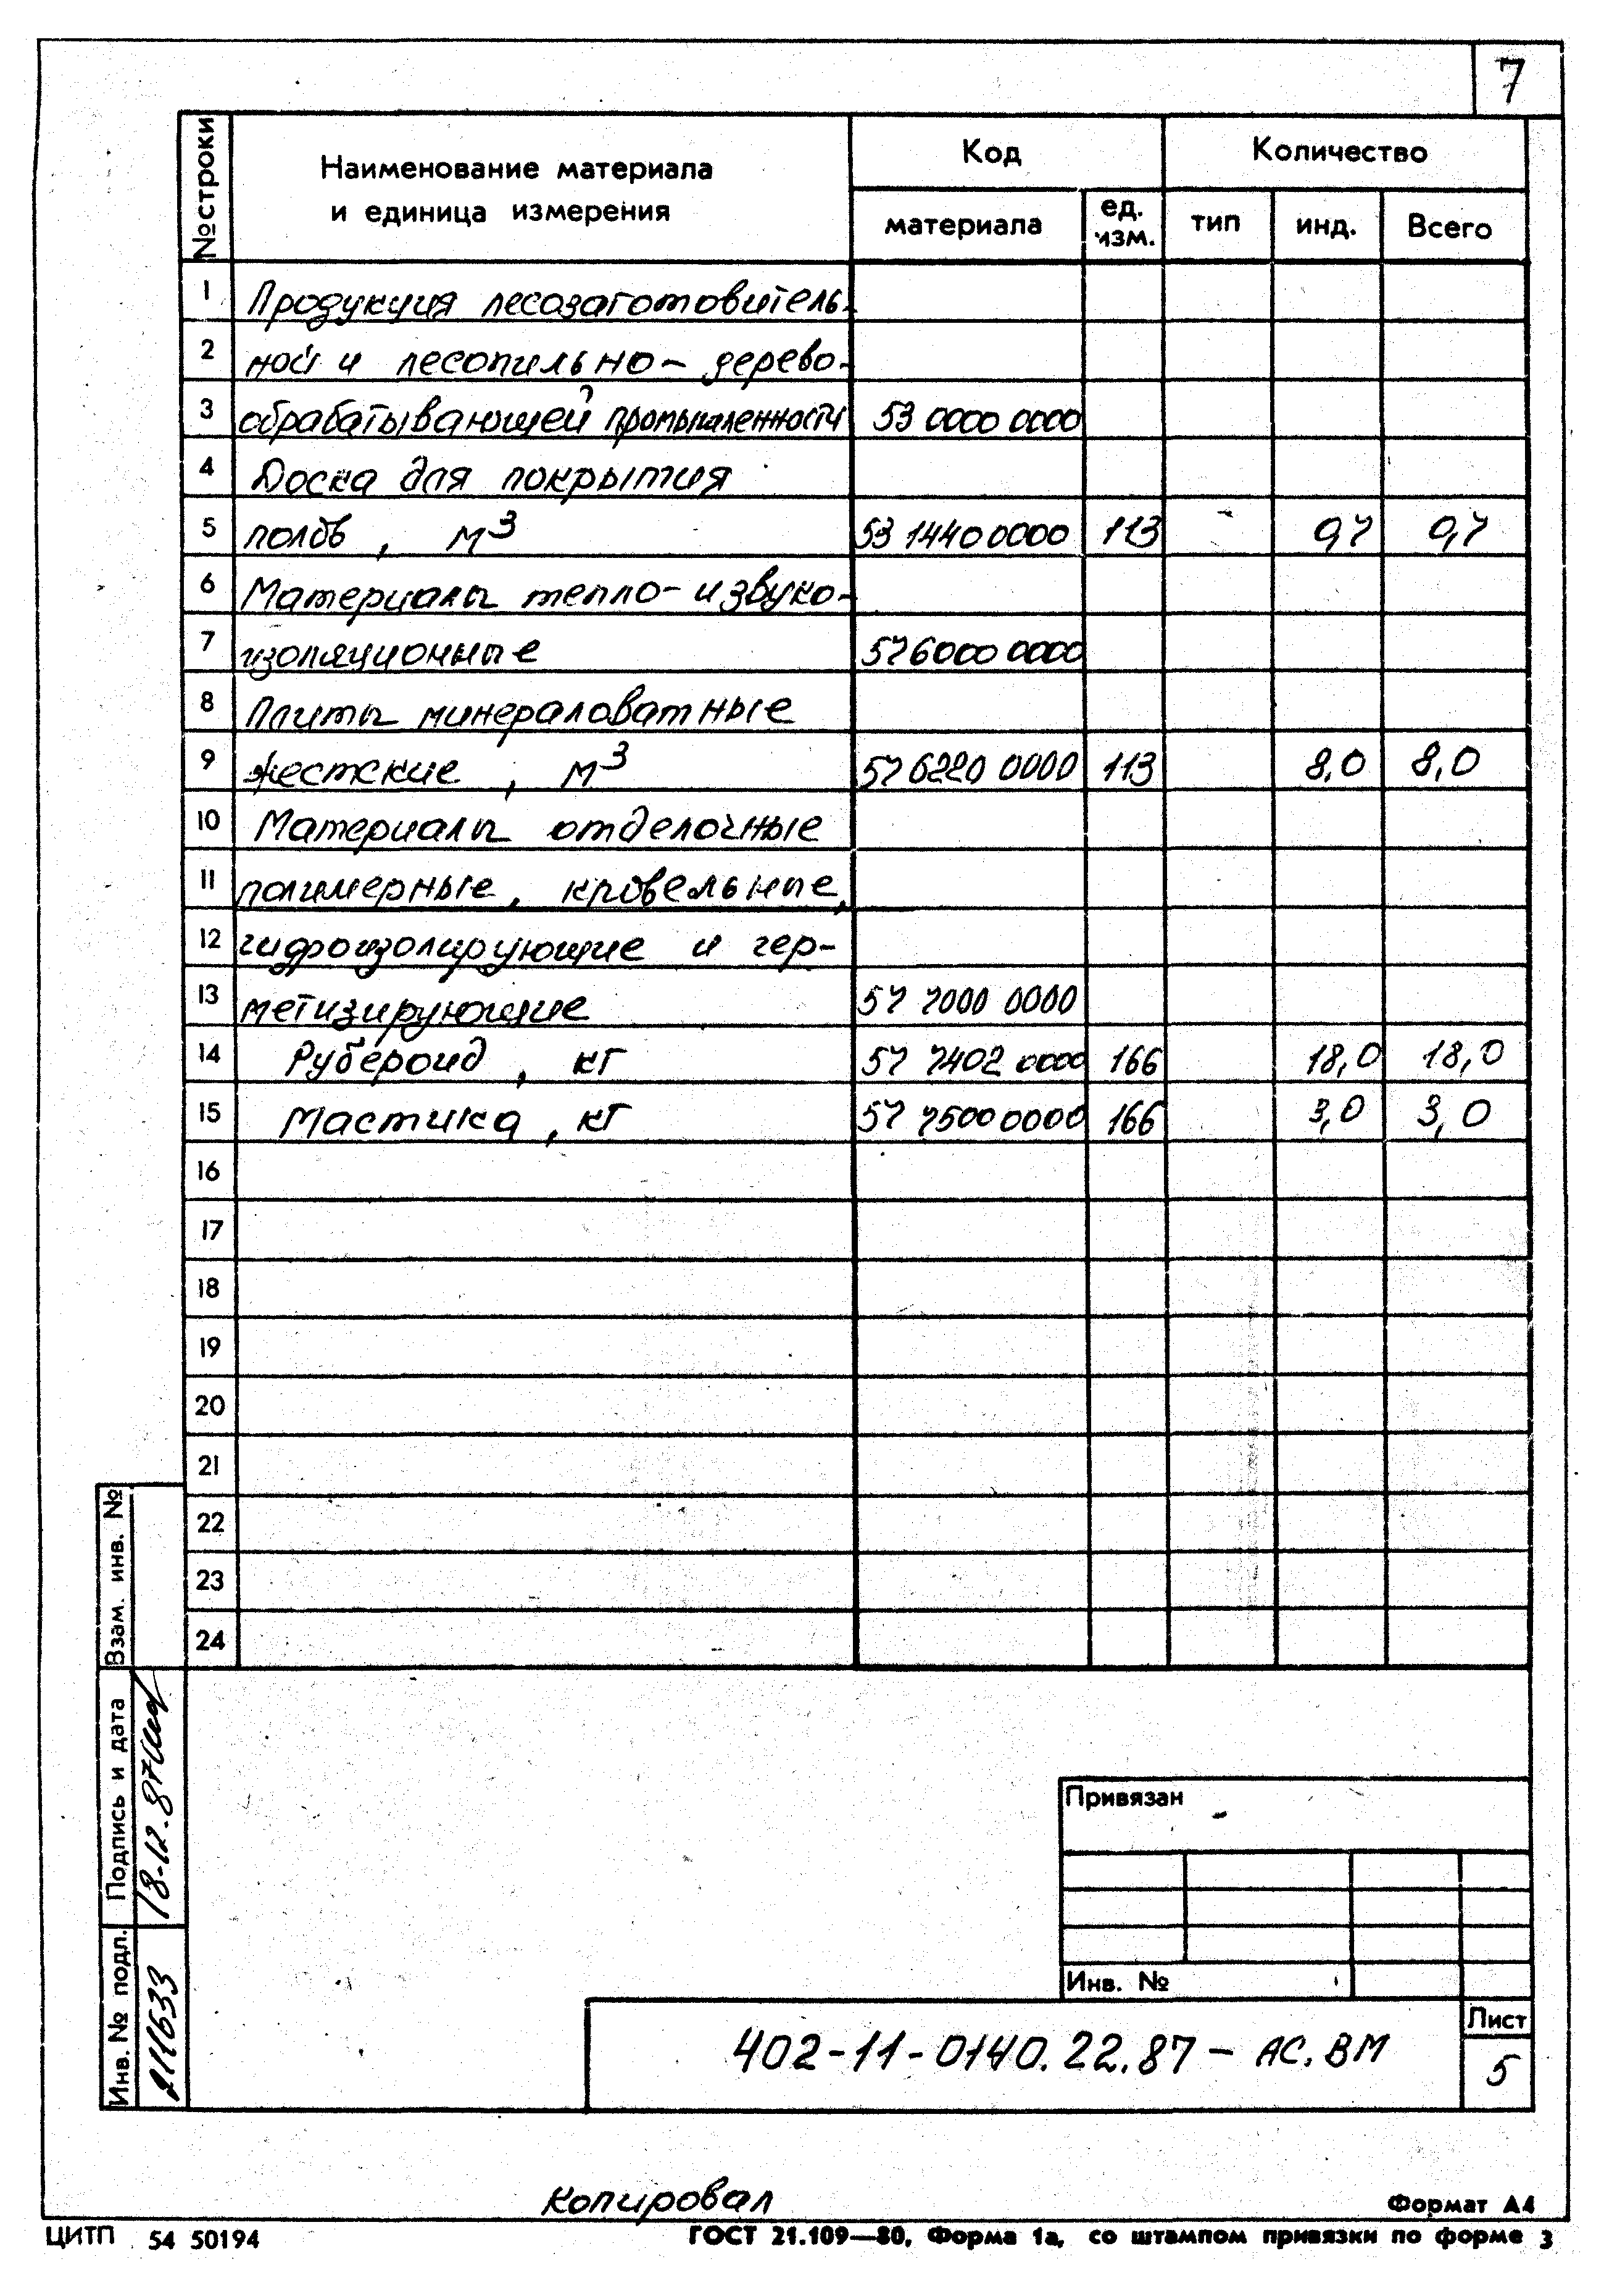 7
№ строки
Наименование материала
и единица измерения
Код
Количество
материала
ед.
изм.
тип
инд.
Всего
1 Продукция лесозаготовитель-
2 ной и лесопильно-дерево-
3 обрабатывающей промышленности 53 0000 0000
4 Доска для покрытия
5 полов, м3 53 1440 0000 113 - 0,7 0,7
6 Материалы тепло- и звуко-
7 изоляционные 57 6000 0000
8 Плиты минераловатные
9 жесткие, м3 57 6220 0000 113 8,0 8,0
10 Материалы отделочные
11 полимерные, кровельные,
12 гидроизолирующие и гер-
13 метизирующие 57 7000 0000
14 Рубероид, кг 57 7402 0000 166 18,0 18,0
15 Мастика, кг 57 7500 0000 166 3,0 3,0
16
17
18
19
20
21
22
23
24
Взам. инв. №
Подпись и дата
18-12.87
Инв. № подл.
Привязан
Инв. №
402-11-0140.22.87 - АС.ВМ
Лист
5
Копировал
Формат А4
ЦИТП 54 50194
ГОСТ 21.109—80, Форма 1а, со штампом привязки по форме 3